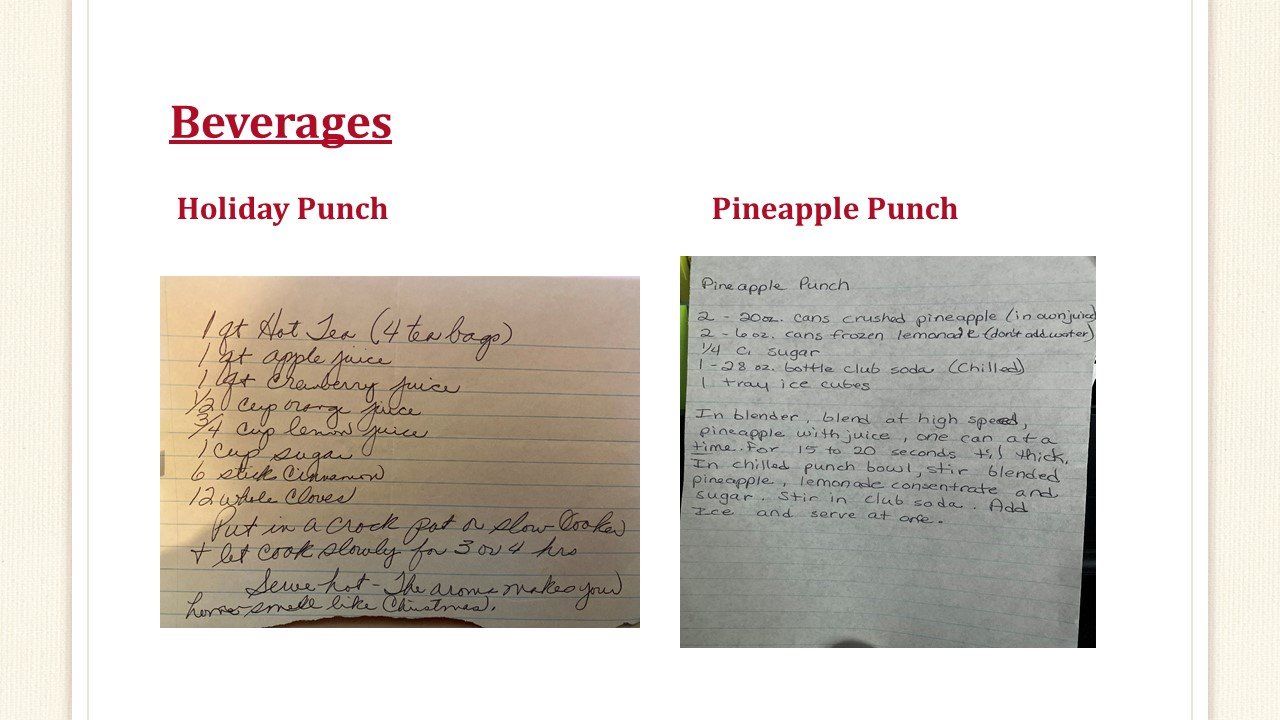 Beverages
Holiday Punch
1 qt Hot Tea (4 tea bags)
1 qt apple juice
1 qt cranberry juice
1/2 cup orange juice
3/4 cup lemon juice
1 cup sugar
6 stick Cinnamon
12 whole Cloves
Put in a crock pot or slow Cooker
+ let cook slowly for 3 or 4 hrs
Serve hot - The aroma makes your
home smell like Christmas.
Pineapple Punch
Pineapple Punch
2 - 20oz. cans crushed pineapple (in own juice)
2 - 6 oz. cans frozen lemonade (don't add water)
1/4 C. sugar
1 - 28 oz. bottle club soda (Chilled)
1 tray ice cubes
In blender, blend at high speed,
pineapple with juice, one can at a
time. For 15 to 20 seconds til thick.
In chilled punch bowl, stir blended
pineapple, lemonade consentrate and
sugar. Stir in club soda. Add
Ice and serve at one.